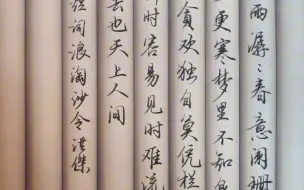 雨潺々春意阑珊
更寒梦里不知
贪欢独自莫凭栏
时容易见时难流
去也天上人间
词浪淘沙令